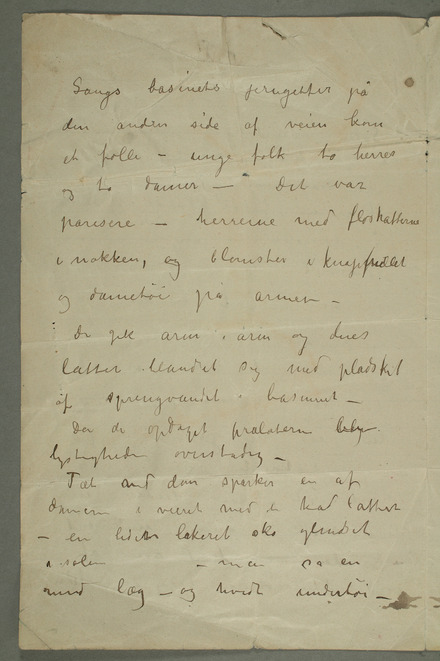 Langs basinets jerngitter på
den anden side af veien kom
et følle – unge folk to herrer
og to damer – Det var
parisere – herrerne med floshattene
i nakken, og blomster i knaphullet
og dametøi på armen –
De gik arm i arm og deres
latter blandet sig med pladsket
af springvandet i basinnet –
Da de opdaget prælaterne blev
lystigheden overstadig –
Tæt ved dem sparker en af
damerne i veiret med en kåd latter
– en liden lakeret sko glindset
i solen – man sa en
rund læg – og hvidt undertøi –